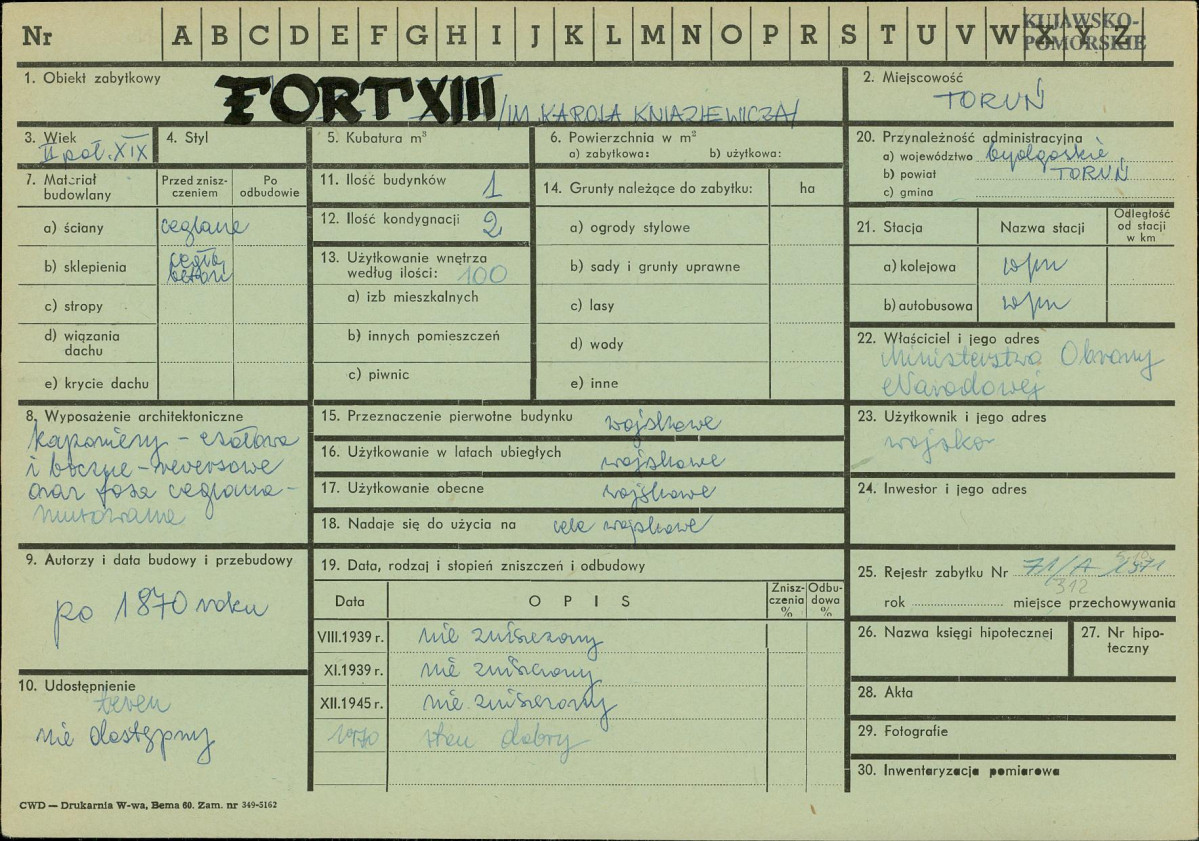 Nr A B C D E F G H I J K L M N O P R S T U V W X Y Z
KUJAWSKO-
POMORSKIE
1. Obiekt zabytkowy
FORT XIII /IM. KAROLA KNIAZIEWICZA/
2. Miejscowość
TORUŃ
3. Wiek
II poł. XIX
4. Styl
5. Kubatura m³
6. Powierzchnia w m²
a) zabytkowa: b) użytkowa:
20. Przynależność administracyjna
a) województwo bydgoskie,
b) powiat TORUŃ
c) gmina
7. Materiał
budowlany
Przed znisz-
czeniem
Po
odbudowie
a) ściany ceglane
b) sklepienia cegła,
beton
c) stropy
d) wiązania
dachu
e) krycie dachu
11. Ilość budynków 1
12. Ilość kondygnacji 2
13. Użytkowanie wnętrza
według ilości: 100
a) izb mieszkalnych
b) innych pomieszczeń
c) piwnic
14. Grunty należące do zabytku: ha
a) ogrody stylowe
b) sady i grunty uprawne
c) lasy
d) wody
e) inne
21. Stacja Nazwa stacji
Odległość
od stacji
w km
a) kolejowa w/m
b) autobusowa w/m
22. Właściciel i jego adres
Ministerstwo Obrony
Narodowej
8. Wyposażenie architektoniczne
kaponiery - czołowa
i boczne - rewersowe
oraz fosa ceglana -
murowana
15. Przeznaczenie pierwotne budynku wojskowe
16. Użytkowanie w latach ubiegłych wojskowe
17. Użytkowanie obecne wojskowe
18. Nadaje się do użycia na cele wojskowe
23. Użytkownik i jego adres
wojsko
24. Inwestor i jego adres
9. Autorzy i data budowy i przebudowy
po 1870 roku
19. Data, rodzaj i stopień zniszczeń i odbudowy
Data OPIS
Znisz-
czenia
%
Odbu-
dowa
%
VIII.1939 r. nie zniszczony
XI.1939 r. nie zniszczony
XII.1945 r. nie zniszczony
1970 stan dobry
25. Rejestr zabytku Nr 71/A 1971
312
rok miejsce przechowywania
26. Nazwa księgi hipotecznej
27. Nr hipo-
teczny
28. Akta
29. Fotografie
30. Inwentaryzacja pomiarowa
10. Udostępnienie
teren
nie dostępny
CWD — Drukarnia W-wa, Bema 60. Zam. nr 349-5162